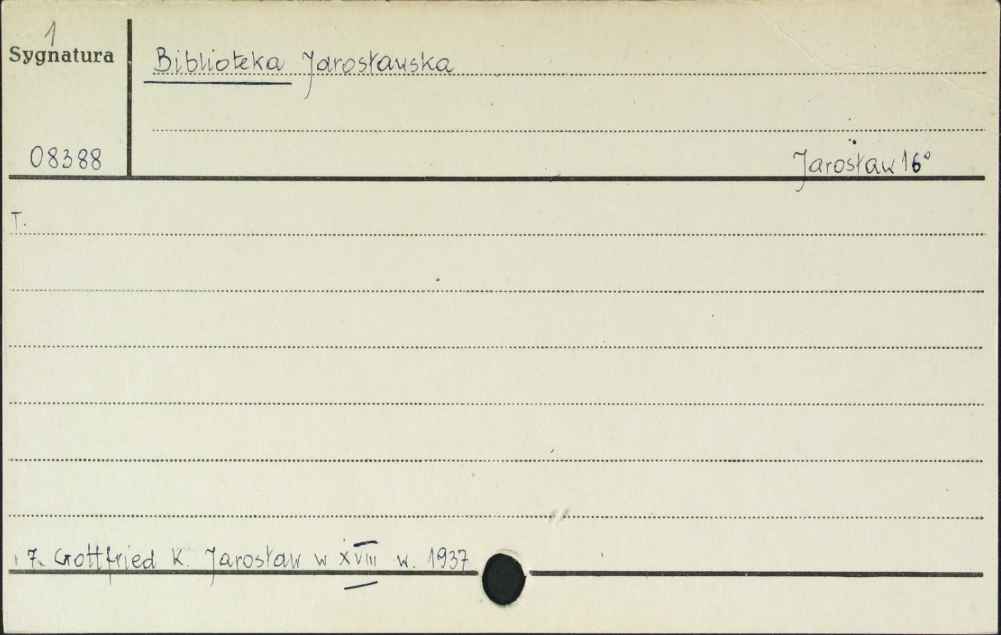 1
Sygnatura
Biblioteka Jarosławska
08388
Jarosław 16°
T.
7. Gottfried K. Jarosław w XVIII w. 1937